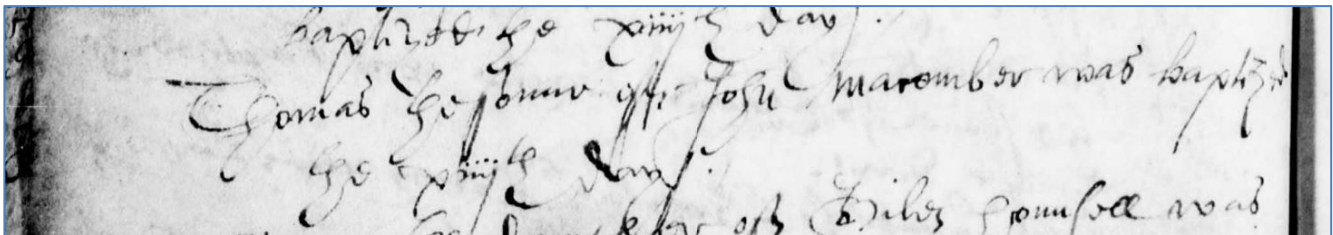 baptized the xiiijth day.
Thomas the sonne of John Macomber was baptized
the xiiijth day.
the daughter of Giles Hounsell was